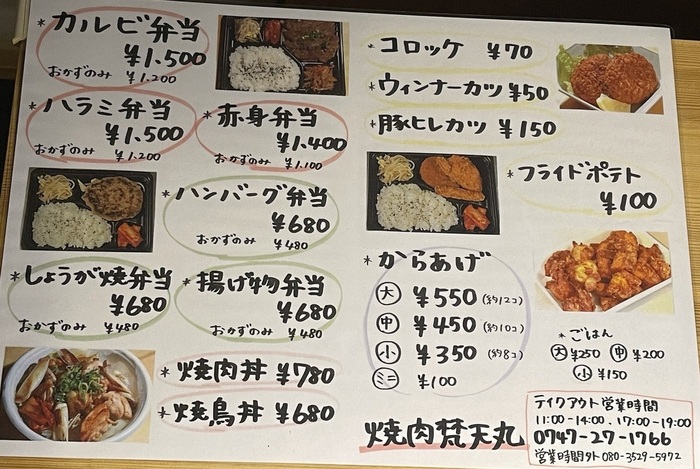 * カルビ弁当
¥1.500
おかずのみ ¥1.200
* ハラミ弁当
¥1.500
おかずのみ ¥1.200
* 赤身弁当
¥1.400
おかずのみ ¥1.100
* ハンバーグ弁当
¥680
おかずのみ ¥480
* しょうが焼弁当
¥680
おかずのみ ¥480
* 揚げ物弁当
¥680
おかずのみ ¥480
* 焼肉丼 ¥780
* 焼鳥丼 ¥680
* コロッケ ¥70
* ウィンナーカツ ¥50
* 豚ヒレカツ ¥150
* フライドポテト
¥100
* からあげ
大 ¥550 (約12コ)
中 ¥450 (約10コ)
小 ¥350 (約8コ)
ミニ ¥100
* ごはん
大 ¥250 中 ¥200
小 ¥150
焼肉梵天丸
テイクアウト営業時間
11:00-14:00.17:00-19:00
0747-27-1766
営業時間外 080-3529-5972